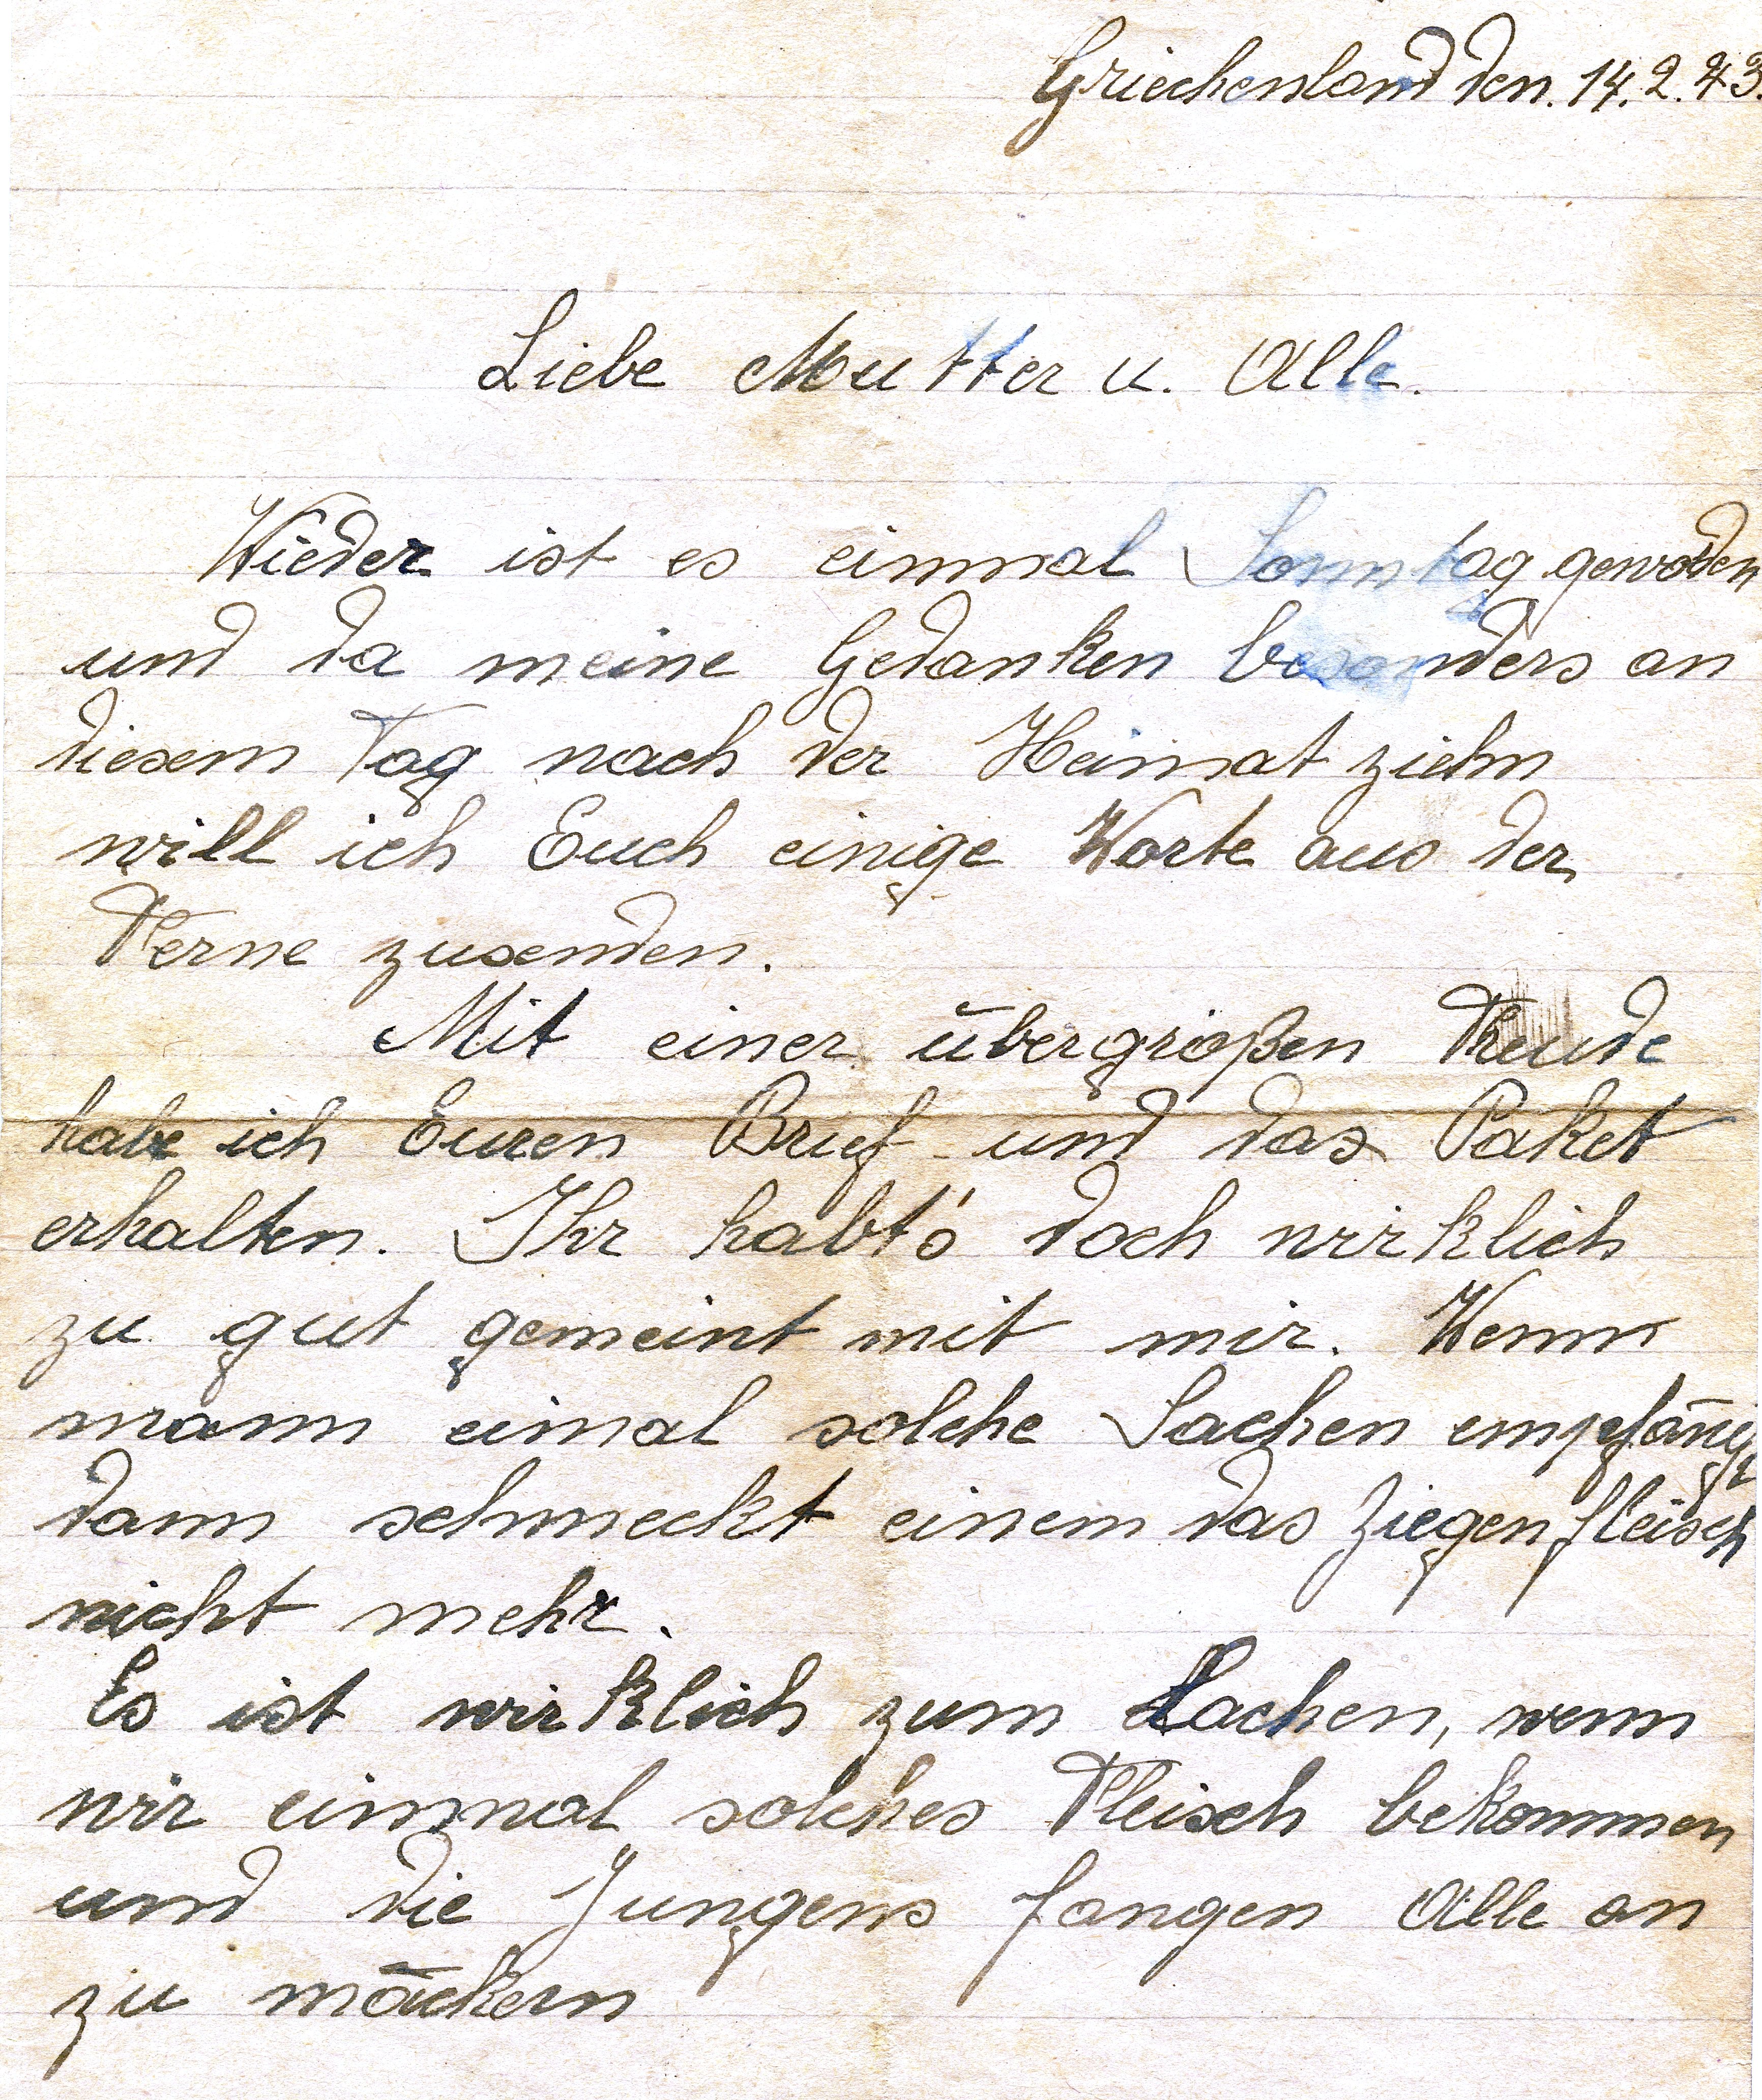 Griechenland den. 14.2.43.
Liebe Mutter u. Alle.
Wieder ist es einmal Sonntag gewoden
und da meine Gedanken besonders an
diesem Tag nach der Heimat ziehn
will ich Euch einige Worte aus der
Ferne zusenden.
Mit einer übergroßen Freude
habe ich Euren Brief und das Paket
erhalten. Ihr habt's doch wirklich
zu gut gemeint mit mir. Wenn
mann eimal solche Sachen empfäng
dann schmeckt einem das Ziegenfleisch
nicht mehr.
Es ist wirklich zum Lachen, wenn
wir einmal solches Fleisch bekommen
und die Jungens fangen Alle an
zu mäckern